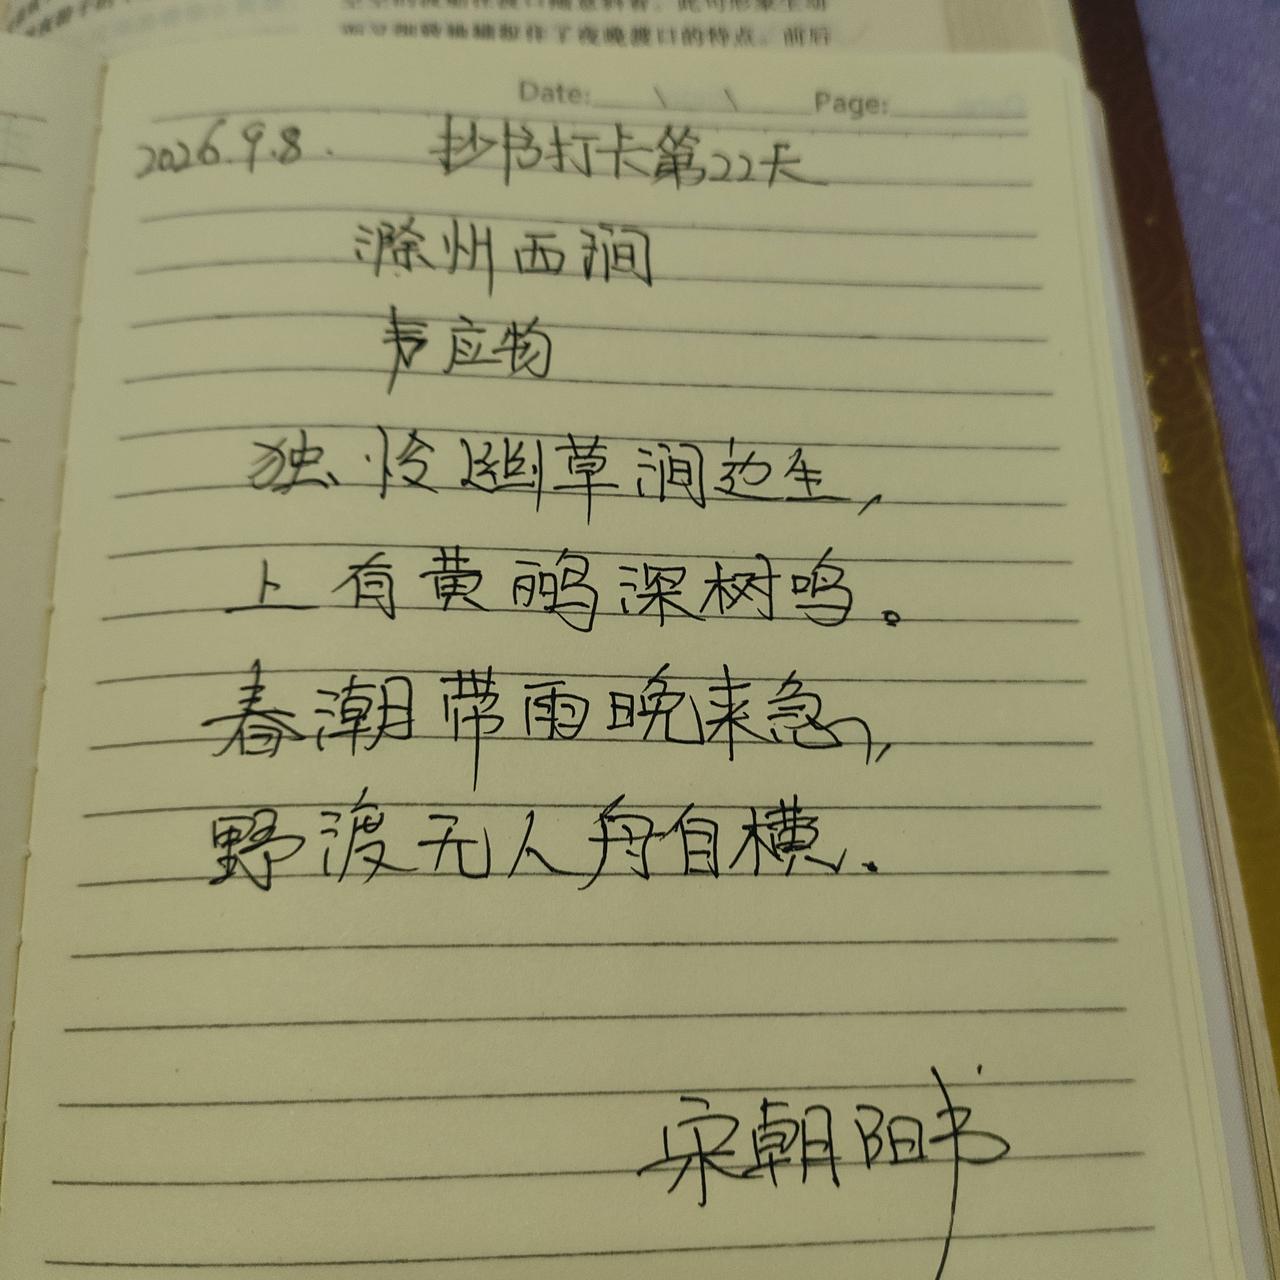 而又细致地描摹了夜晚渡口的特点。前后
Date: \ \ Page:
2026.9.8. 抄书打卡第22天
滁州西涧
韦应物
独怜幽草涧边生,
上有黄鹂深树鸣。
春潮带雨晚来急,
野渡无人舟自横.
宋朝阳书